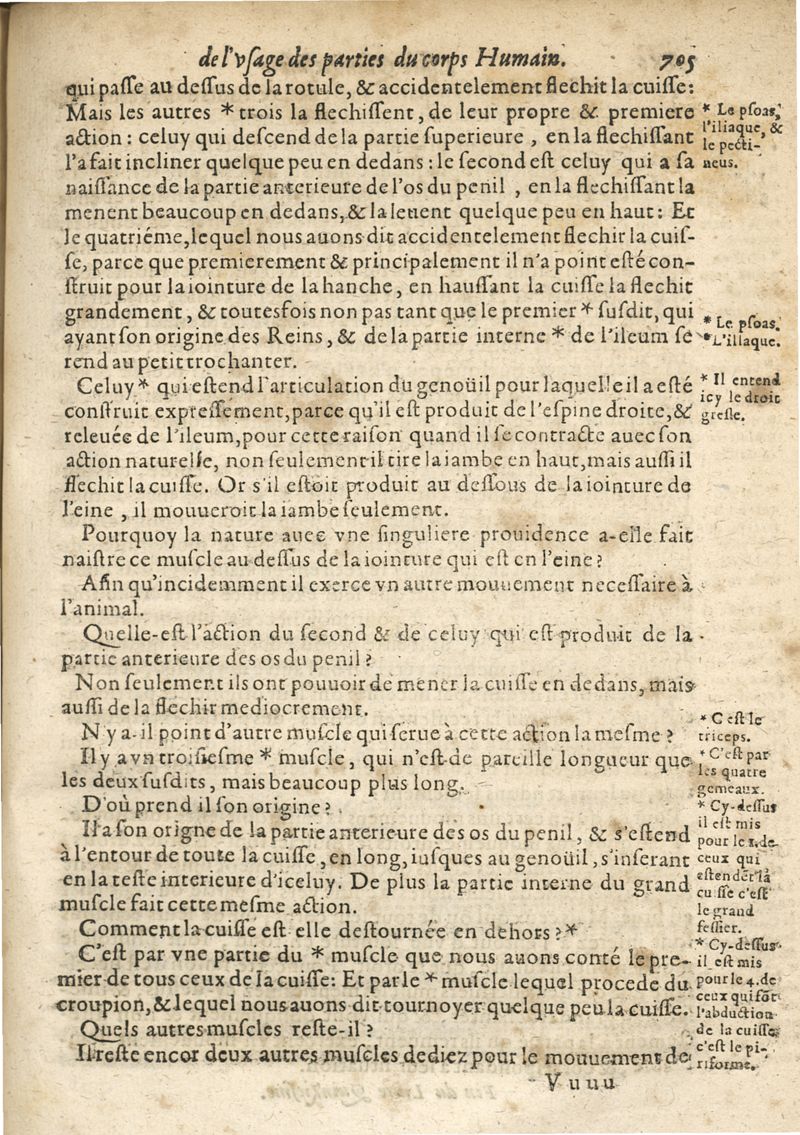 de l'vſage des parties du corps Humain. 705
qui paſſe au deſſus de la rotule, & accidentelement flechit la cuiſſe:
Mais les autres * trois la flechiſſent, de leur propre & premiere
action : celuy qui deſcend de la partie ſuperieure , en la flechiſſant
l'a fait incliner quelque peu en dedans : le ſecond eſt celuy qui a ſa
naiſſance de la partie anterieure de l'os du penil , en la flechiſſant la
menent beaucoup en dedans, & la leuent quelque peu en haut: Et
le quatriéme, lequel nous auons dit accidentelement flechir la cuiſ-
ſe, parce que premierement & principalement il n'a point eſté con-
ſtruit pour la iointure de la hanche, en hauſſant la cuiſſe la flechit
grandement, & toutesfois non pas tant que le premier * ſuſdit, qui
ayant ſon origine des Reins, & de la partie interne * de l'ileum ſe
rend au petit trochanter.
Celuy * qui eſtend l'articulation du genoüil pour laquelle il a eſté
conſtruit expreſſément, parce qu'il eſt produit de l'eſpine droite, &
releuée de l'ileum, pour cette raiſon quand il ſe contracte auec ſon
action naturelle, non ſeulement il tire la iambe en haut, mais auſſi il
flechit la cuiſſe. Or s'il eſtoit produit au deſſous de la iointure de
l'eine , il mouueroit la iambe ſeulement.
Pourquoy la nature auec vne ſinguliere prouidence a-elle fait
naiſtre ce muſcle au deſſus de la iointure qui eſt en l'eine ?
Afin qu'incidemment il exerce vn autre mouuement neceſſaire à
l'animal.
Quelle-eſt l'action du ſecond & de celuy qui eſt produit de la
partie anterieure des os du penil ?
Non ſeulement ils ont pouuoir de mener la cuiſſe en dedans, mais
auſſi de la flechir mediocrement.
N'y a-il point d'autre muſcle qui ſerue à cette action la meſme ?
Il y a vn troiſieſme * muſcle, qui n'eſt de pareille longueur que
les deux ſuſdits, mais beaucoup plus long.
D'où prend il ſon origine ?
Il a ſon origne de la partie anterieure des os du penil, & s'eſtend
à l'entour de toute la cuiſſe, en long, iuſques au genoüil, s'inſerant
en la teſte interieure d'iceluy. De plus la partie interne du grand
muſcle fait cette meſme action.
Comment la cuiſſe eſt elle deſtournée en dehors ? *
C'eſt par vne partie du * muſcle que nous auons conté le pre-
mier de tous ceux de la cuiſſe: Et par le * muſcle lequel procede du
croupion, & lequel nous auons dit tournoyer quelque peu la cuiſſe.
Quels autres muſcles reſte-il ?
Il reſte encor deux autres muſcles dediez pour le mouuement de
V u u u
* Le pſoas,
l'iliaque, &
le pecti-
neus.
* Le pſoas.
* L'illaque.
* Il entend
icy le droit
greſle.
* C eſt le
triceps.
* C'eſt par
les quatre
gemeaux.
* Cy-deſſus
il eſt mis
pour le 1. de
ceux qui
eſtendẽt la
cuiſſe c'eſt
le grand
feſſier.
* Cy-deſſus
il eſt mis
pour le 4. de
ceux qui fõt
l'abduction
de la cuiſſe,
c'eſt le pi-
riforme.